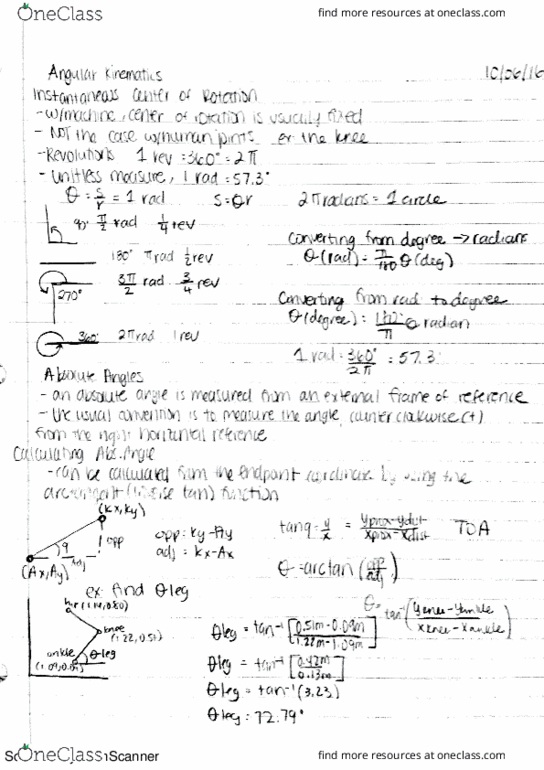 OneClass
find more resources at oneclass.com
Angular Kinematics 10/06/16
Instantaneous Center of Rotation
- w/machine, center of rotation is usually fixed
- NOT the case w/human joints. ex the knee
- Revolutions 1 rev = 360° = 2π
- unitless measure, 1 rad = 57.3°
θ = s/r = 1 rad s = θr 2π radians = 1 circle
90° π/2 rad 1/4 rev
Converting from degree → radians
180° π rad 1/2 rev
θ(rad) = π/180 θ(deg)
270° 3π/2 rad 3/4 rev
Converting from rad to degree
θ(degree) = 180°/π θ radian
360° 2π rad 1 rev
1 rad = 360°/2π = 57.3
Absolute Angles
- an absolute angle is measured from an external frame of reference
- the usual convention is to measure the angle counter clockwise (+)
from the right horizontal reference
Calculating Abs. Angle
- can be calculated from the endpoint coordinate by using the
arctangent (inverse tan) function
(Kx,Ky)
opp
θ
adj
(Ax,Ay)
opp = Ky-Ay
adj = Kx-Ax
tanθ = y/x = yprox-ydist/xprox-xdist TOA
θ = arctan (opp/adj)
ex: find θleg
hip (1.14, 0.80)
knee
(1.22, 0.51)
ankle
(1.09, 0.09)
θleg
θ = tan⁻¹ (yknee-yankle/xknee-xankle)
θleg = tan⁻¹ [0.51m-0.09m/1.22m-1.09m]
θleg = tan⁻¹ [0.42m/0.13m]
θleg = tan⁻¹ (3.23)
θleg = 72.79°
OneClass
Scanner
find more resources at oneclass.com